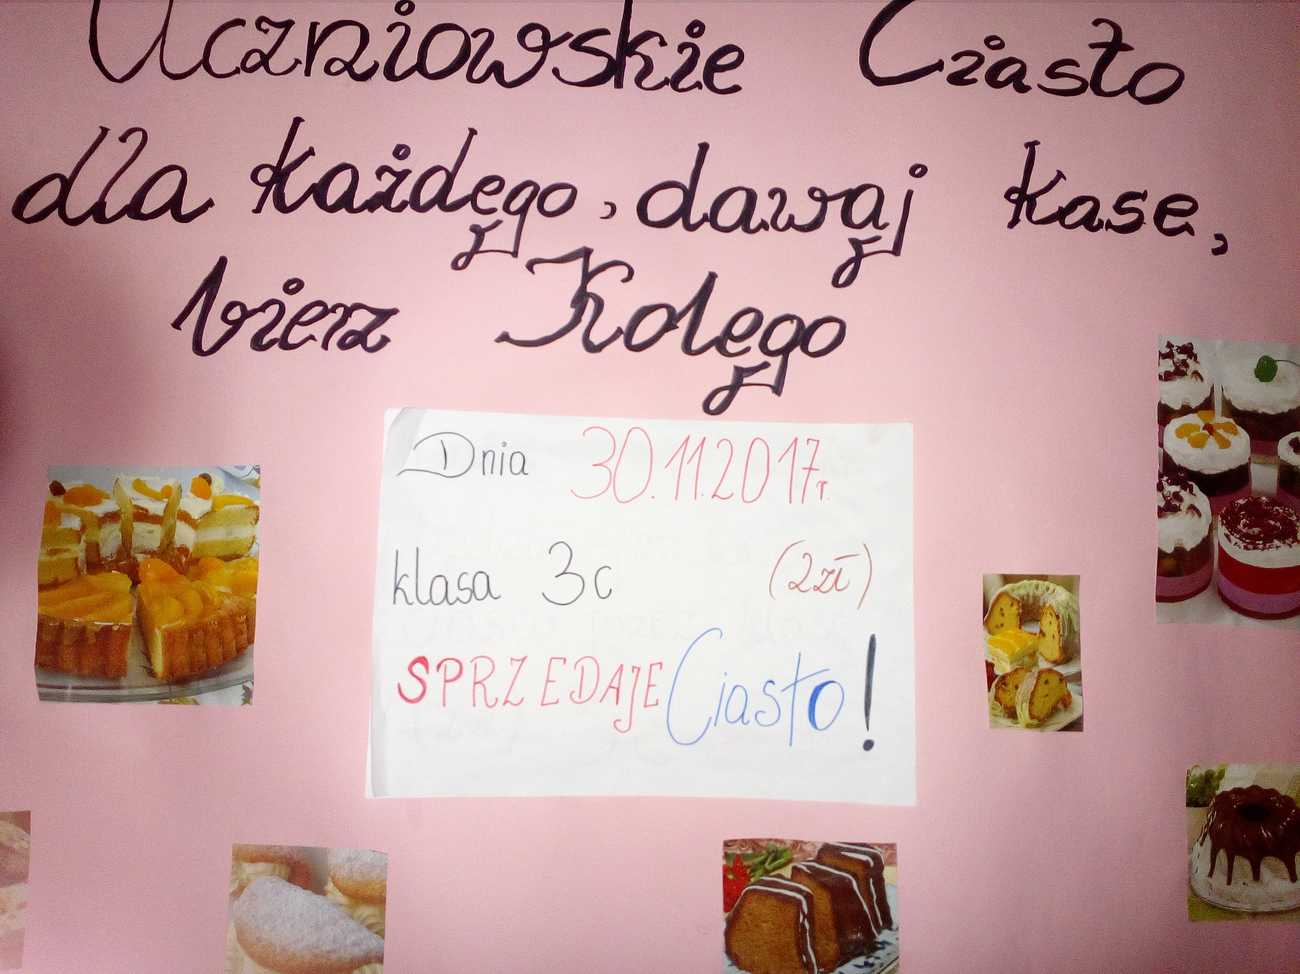 Uczniowskie Ciasto
dla każdego, dawaj kase,
bierz Kolego
Dnia 30.11.2017r.
klasa 3c (2zł)
SPRZEDAJE Ciasto!